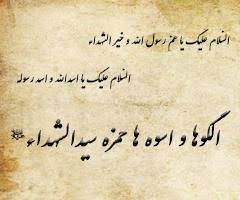 السلام علیک یا عم رسول الله و خیر الشهداء
السلام علیک یا اسدالله و اسد رسوله
الگوها و اسوه ها حمزه سیدالشهداء